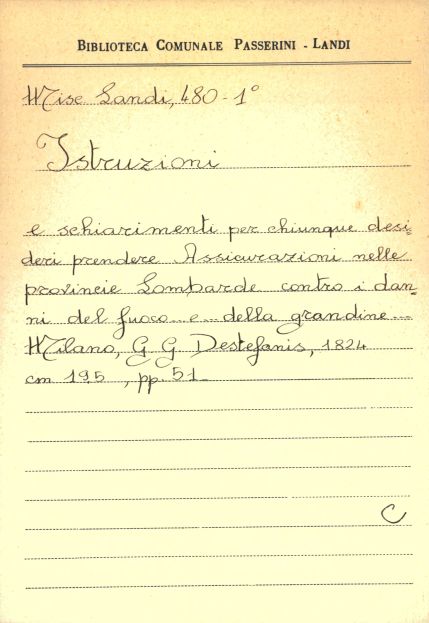 BIBLIOTECA COMUNALE PASSERINI - LANDI
Misc Landi, 480 - 1°
Istruzioni
e schiarimenti per chiunque desi-
deri prendere Assicurazioni nelle
provincie Lombarde contro i dan-
ni del fuoco e della grandine...
Milano, G. G. Destefanis, 1824
cm 19.5 , pp. 51
C